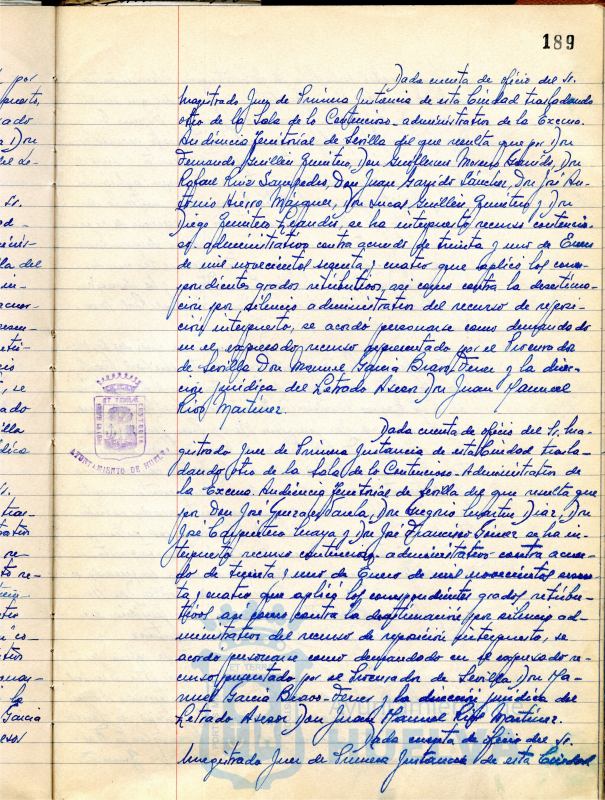 189
Dada cuenta de oficio del Sr.
Magistrado Juez de Primera Instancia de esta Ciudad trasladando
otro de la Sala de lo Contencioso-administrativo de la Excma.
Audiencia Territorial de Sevilla del que resulta que por Don
Fernando Guillén Quintero, Don Guillermo Moreno Garrido, Don
Rafael Ruiz Sampedro, Don Juan Garrido Sánchez, Don José An-
tonio Hierro Márquez, Don Lucas Guillén Quintero y Don
Diego Quintero Leandro, se ha interpuesto recurso contencio-
so administrativo contra acuerdo de treinta y uno de Enero
de mil novecientos sesenta y cuatro que aplicó los corres-
pondientes grados retributivos, así como contra la desestima-
ción por silencio administrativo del recurso de reposi-
ción interpuesto, se acordó personarse como demandado
en el expresado recurso representado por el Procurador
de Sevilla Don Manuel García Bravo-Ferrer y la direc-
ción jurídica del Letrado Asesor Don Juan Manuel
Martínez.
Dada cuenta de oficio del Sr. Ma-
gistrado Juez de Primera Instancia de esta Ciudad trasla-
dando otro de la Sala de lo Contencioso-Administrativo de
la Excma. Audiencia Territorial de Sevilla del que resulta que
por Don José González Varela, Don Gregorio Martín Díaz, Don
José Carpintero y Don José Francisco Gómez se ha in-
terpuesto recurso contencioso-administrativo contra acuer-
do de treinta y uno de Enero de mil novecientos sesen-
ta y cuatro que aplicó los correspondientes grados retribu-
tivos así como contra la desestimación por silencio ad-
ministrativo del recurso de reposición interpuesto, se
acordó personarse como demandado en el expresado re-
curso por el Procurador de Sevilla Don Ma-
nuel García Bravo-Ferrer y la dirección jurídica del
Letrado Asesor Don Juan Manuel Martínez.
Dada cuenta de oficio del Sr.
Magistrado Juez de Primera Instancia de esta Ciudad
AYUNTAMIENTO DE HUELVA